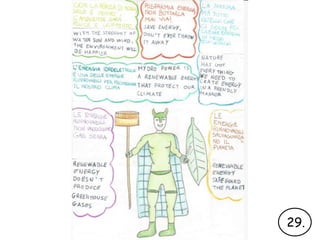 CON LA FORZA DI
SOLE E VENTO
L'AMBIENTE SARÀ
WITH THE STRENGTH OF
WATER SUN AND WIND,
THE ENVIRONMENT WILL
BE HAPPIER
RISPARMIA ENERGIA
NON BUTTARLA
MAI VIA!
SAVE ENERGY,
DON'T EVER THROW
IT AWAY!
LA NATURA
HA TUTTO
NATURE
HAS GOT
EVERYTHING
WE NEED TO
CREATE ENERGY
IN A FRIENDLY
MANNER
L'ENERGIA IDROELETTRICA
È UNA DELLE ENERGIE
RINNOVABILI CHE PROTEGGONO
IL NOSTRO CLIMA
HYDRO POWER IS
A RENEWABLE ENERGY
THAT PROTECT OUR
CLIMATE
LE ENERGIE
RINNOVABILI
NON PRODUCONO
GAS SERRA
RENEWABLE
ENERGY
DOESN'T
PRODUCE
GREENHOUSE
GASES
LE
ENERGIE
RINNOVABILI
SALVAGUARDANO
IL
PIANETA
RENEWABLE
ENERGY
SAFEGUARD
THE PLANET
29.